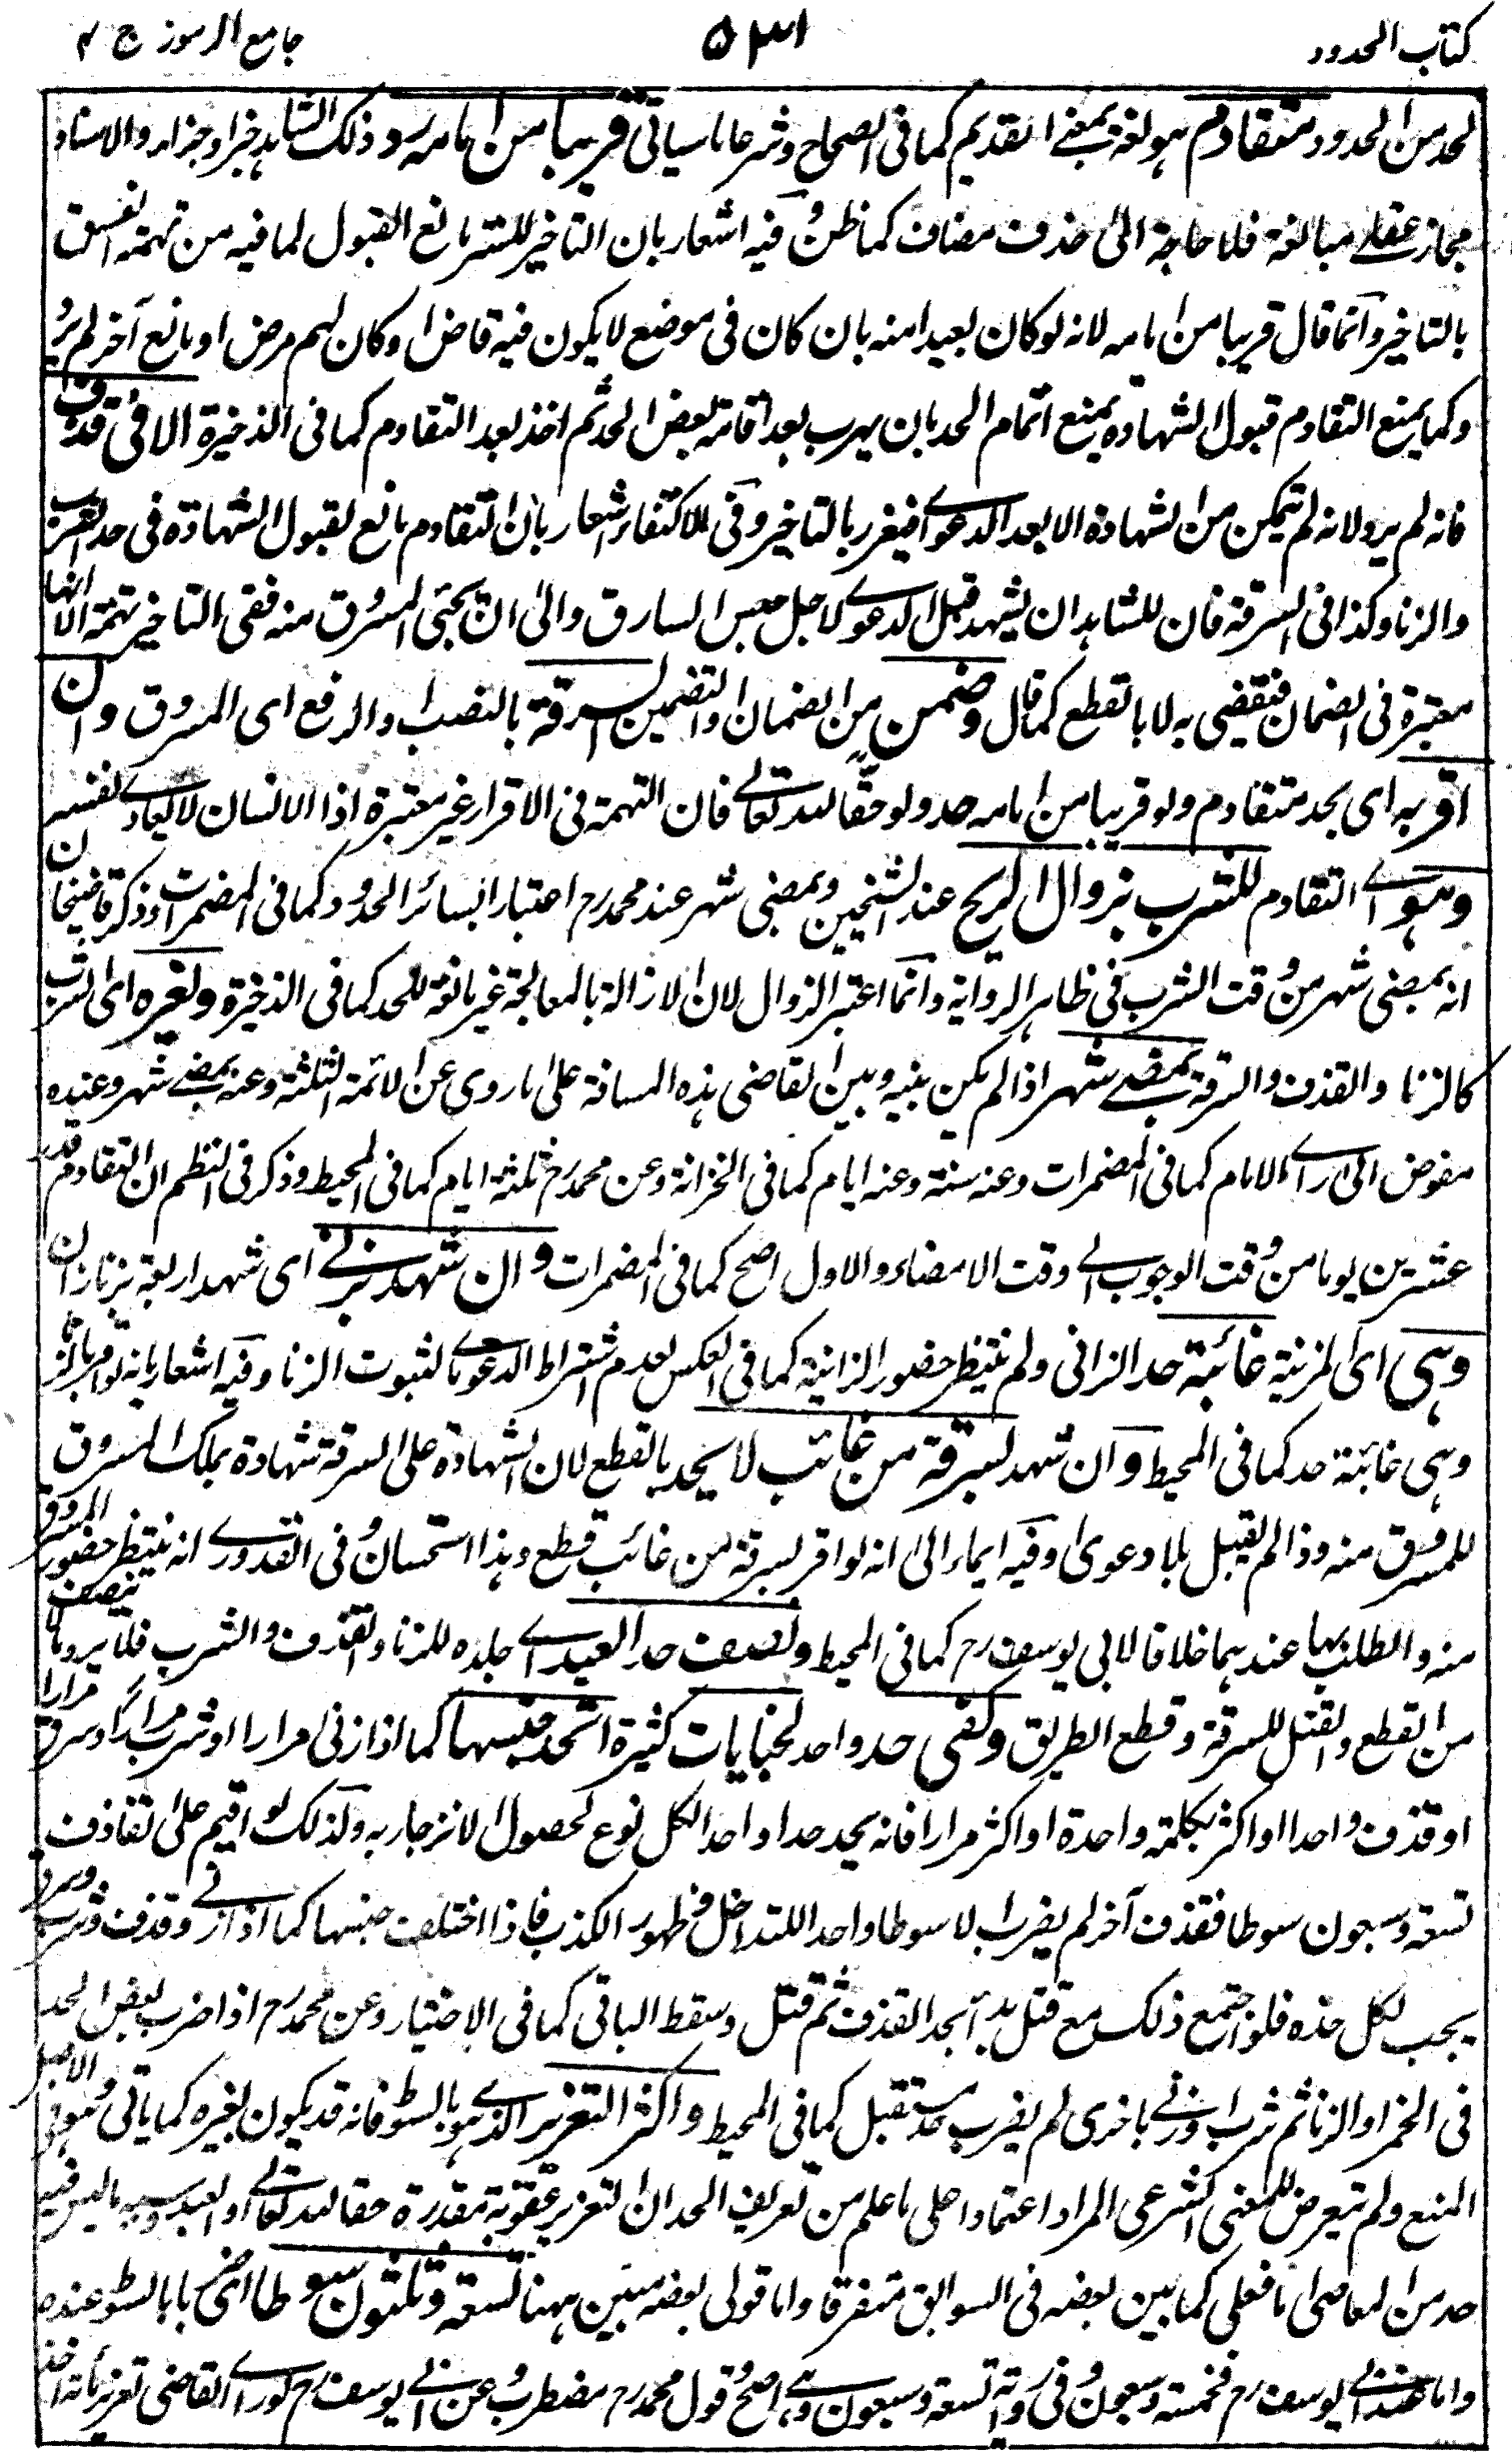 كتاب الحدود ۵۳۱ جامع الرموز ج ۲
لحد من الحدود متقادم هو لغة بمعنى القديم كما فى الصحاح وشرعا ما سياتى قريبا من امامه رد ذلك الشاهد خبر او جزاء والاسناد
مجاز عقلے مبالغة فلا حاجة الى حذف مضاف كما ظن وفيه اشعار بان التاخير للستر مانع القبول لما فيه من تهمة الفسق
بالتاخير وانما قال قريبا من امامه لانه لو كان بعيدا منه بان كان فى موضع لا يكون فيه قاض او كان لهم مرض او مانع آخر لم يرد
وكما يمنع التقادم قبول الشهادة يمنع اتمام الحد بان يهرب بعد اقامة بعض الحد ثم اخذ بعد التقادم كما فى الذخيرة الا فى قذف
فانه لم يرد لانه لم يتمكن من الشهادة الا بعد الدعوے فيعذر بالتاخير وفى الاكتفاء اشعار بان التقادم مانع لقبول الشهادة فى حد الشرب
والزنا وكذا فى السرقة فان للشاهد ان يشهد قبل الدعوے لاجل حبس السارق والى ان يجئ المسروق منه ففى التاخير تهمة الا انها
معتبرة فى الضمان فيقضى به لا بالقطع كما قال وضمن من الضمان او التضمين السرقة بالنصب والرفع اى المسروق وان
اقر به اى بحد متقادم ولو قريبا من امامه حد ولو حقا لله تعالے فان التهمة فى الاقرار غير معتبرة اذ الانسان لا يعادے نفسه
وهو اے التقادم للشرب بزوال الريح عند الشيخين وبمضى شهر عند محمد رح اعتبارا بسائر الحدود كما فى المضمرات وذكر قاضيخان
انه بمضى شهر من وقت الشرب فى ظاهر الرواية وانما اعتبر الزوال لان الازالة بالمعالجة غير مانعة للحد كما فى الذخيرة ولغيره اى الشرب
كالزنا والقذف والسرقة بمضے شهر اذا لم يكن بينه وبين القاضى هذه المسافة على ما روى عن الائمة الثلثة وعنه بمضے شهر وعنده
مفوض الى راے الامام كما فى المضمرات وعنه سنة وعنه ايام كما فى الخزانة وعن محمد رح ثلثة ايام كما فى المحيط وذكر فى النظم ان التقادم قدر
عشرين يوما من وقت الوجوب الے وقت الامضاء والاول اصح كما فى المضمرات وان شهد بزنے اى شهد اربعة بزنا زان
وهى اى المزنية غائبة حد الزانى ولم ينتظر حضور الزانية كما فى العكس لعدم اشتراط الدعوے لثبوت الزنا وفيه اشعار بانه لو اقر بالزنا
وهى غائبة حد كما فى المحيط وان شهد لسرقة من غائب لا يحد بالقطع لان الشهادة على السرقة شهادة بملك المسروق
للمسروق منه وذا لم يقبل بلا دعوى وفيه ايماء الى انه لو اقر لسرقة من غائب قطع وهذا استحسان وفى القدورے انه ينتظر حضور المسروق
منه والطلب بها عندهما خلافا لابى يوسف رح كما فى المحيط ونصف حد العبد اے جلده للزنا والقذف والشرب فلا يرد ما لا يتنصف
من القطع والقتل للسرقة وقطع الطريق وكفى حد واحد لجنايات كثيرة اتحد جنسها كما اذا زنى مرارا او شرب مرارا او سرق مرارا
او قذف واحدا او اكثر بكلمة واحدة او اكثر مرارا فانه يحد حدا واحدا لكل نوع لحصول الانزجار به ولذلك لو اقيم على القاذف
تسعة وسبعون سوطا فقذف آخر لم يضرب الا سوطا واحدا للتداخل وظهور الكذب فاذا اختلف جنسها كما اذا زنے وقذف وشرب وسرق
يجب لكل حده فلو اجتمع ذلك مع قتل بدأ بحد القذف ثم قتل وسقط الباقى كما فى الاختيار وعن محمد رح اذا ضرب بعض الحد
فى الخمر او الزنا ثم شرب او زنے باخرى لم يضرب حد مستقبل كما فى المحيط واكثر التعزير الذے هو بالسوط فانه قد يكون بغيره كما ياتى وهو فى الاصل
المنع ولم يتعرض للمعنى الشرعى المراد اعتمادا على ما علم من تعريف الحد ان التعزير عقوبة غير مقدرة حقا لله تعالے او العبد وسببه ما ليس فيه
حد من المعاصى الفعلى كما بين بعضه فى السوابق متفرقا واما قولى بعضه مبين ههنا تسعة وثلثون سوطا اى ضربا بالسوط عنده
واما عند ابے يوسف رح فخمسة وسبعون وفى رواية تسعة وسبعون وهے اصح وقول محمد رح مضطرب وعن ابے يوسف رح لو راے القاضى تعزير مائة اخذ